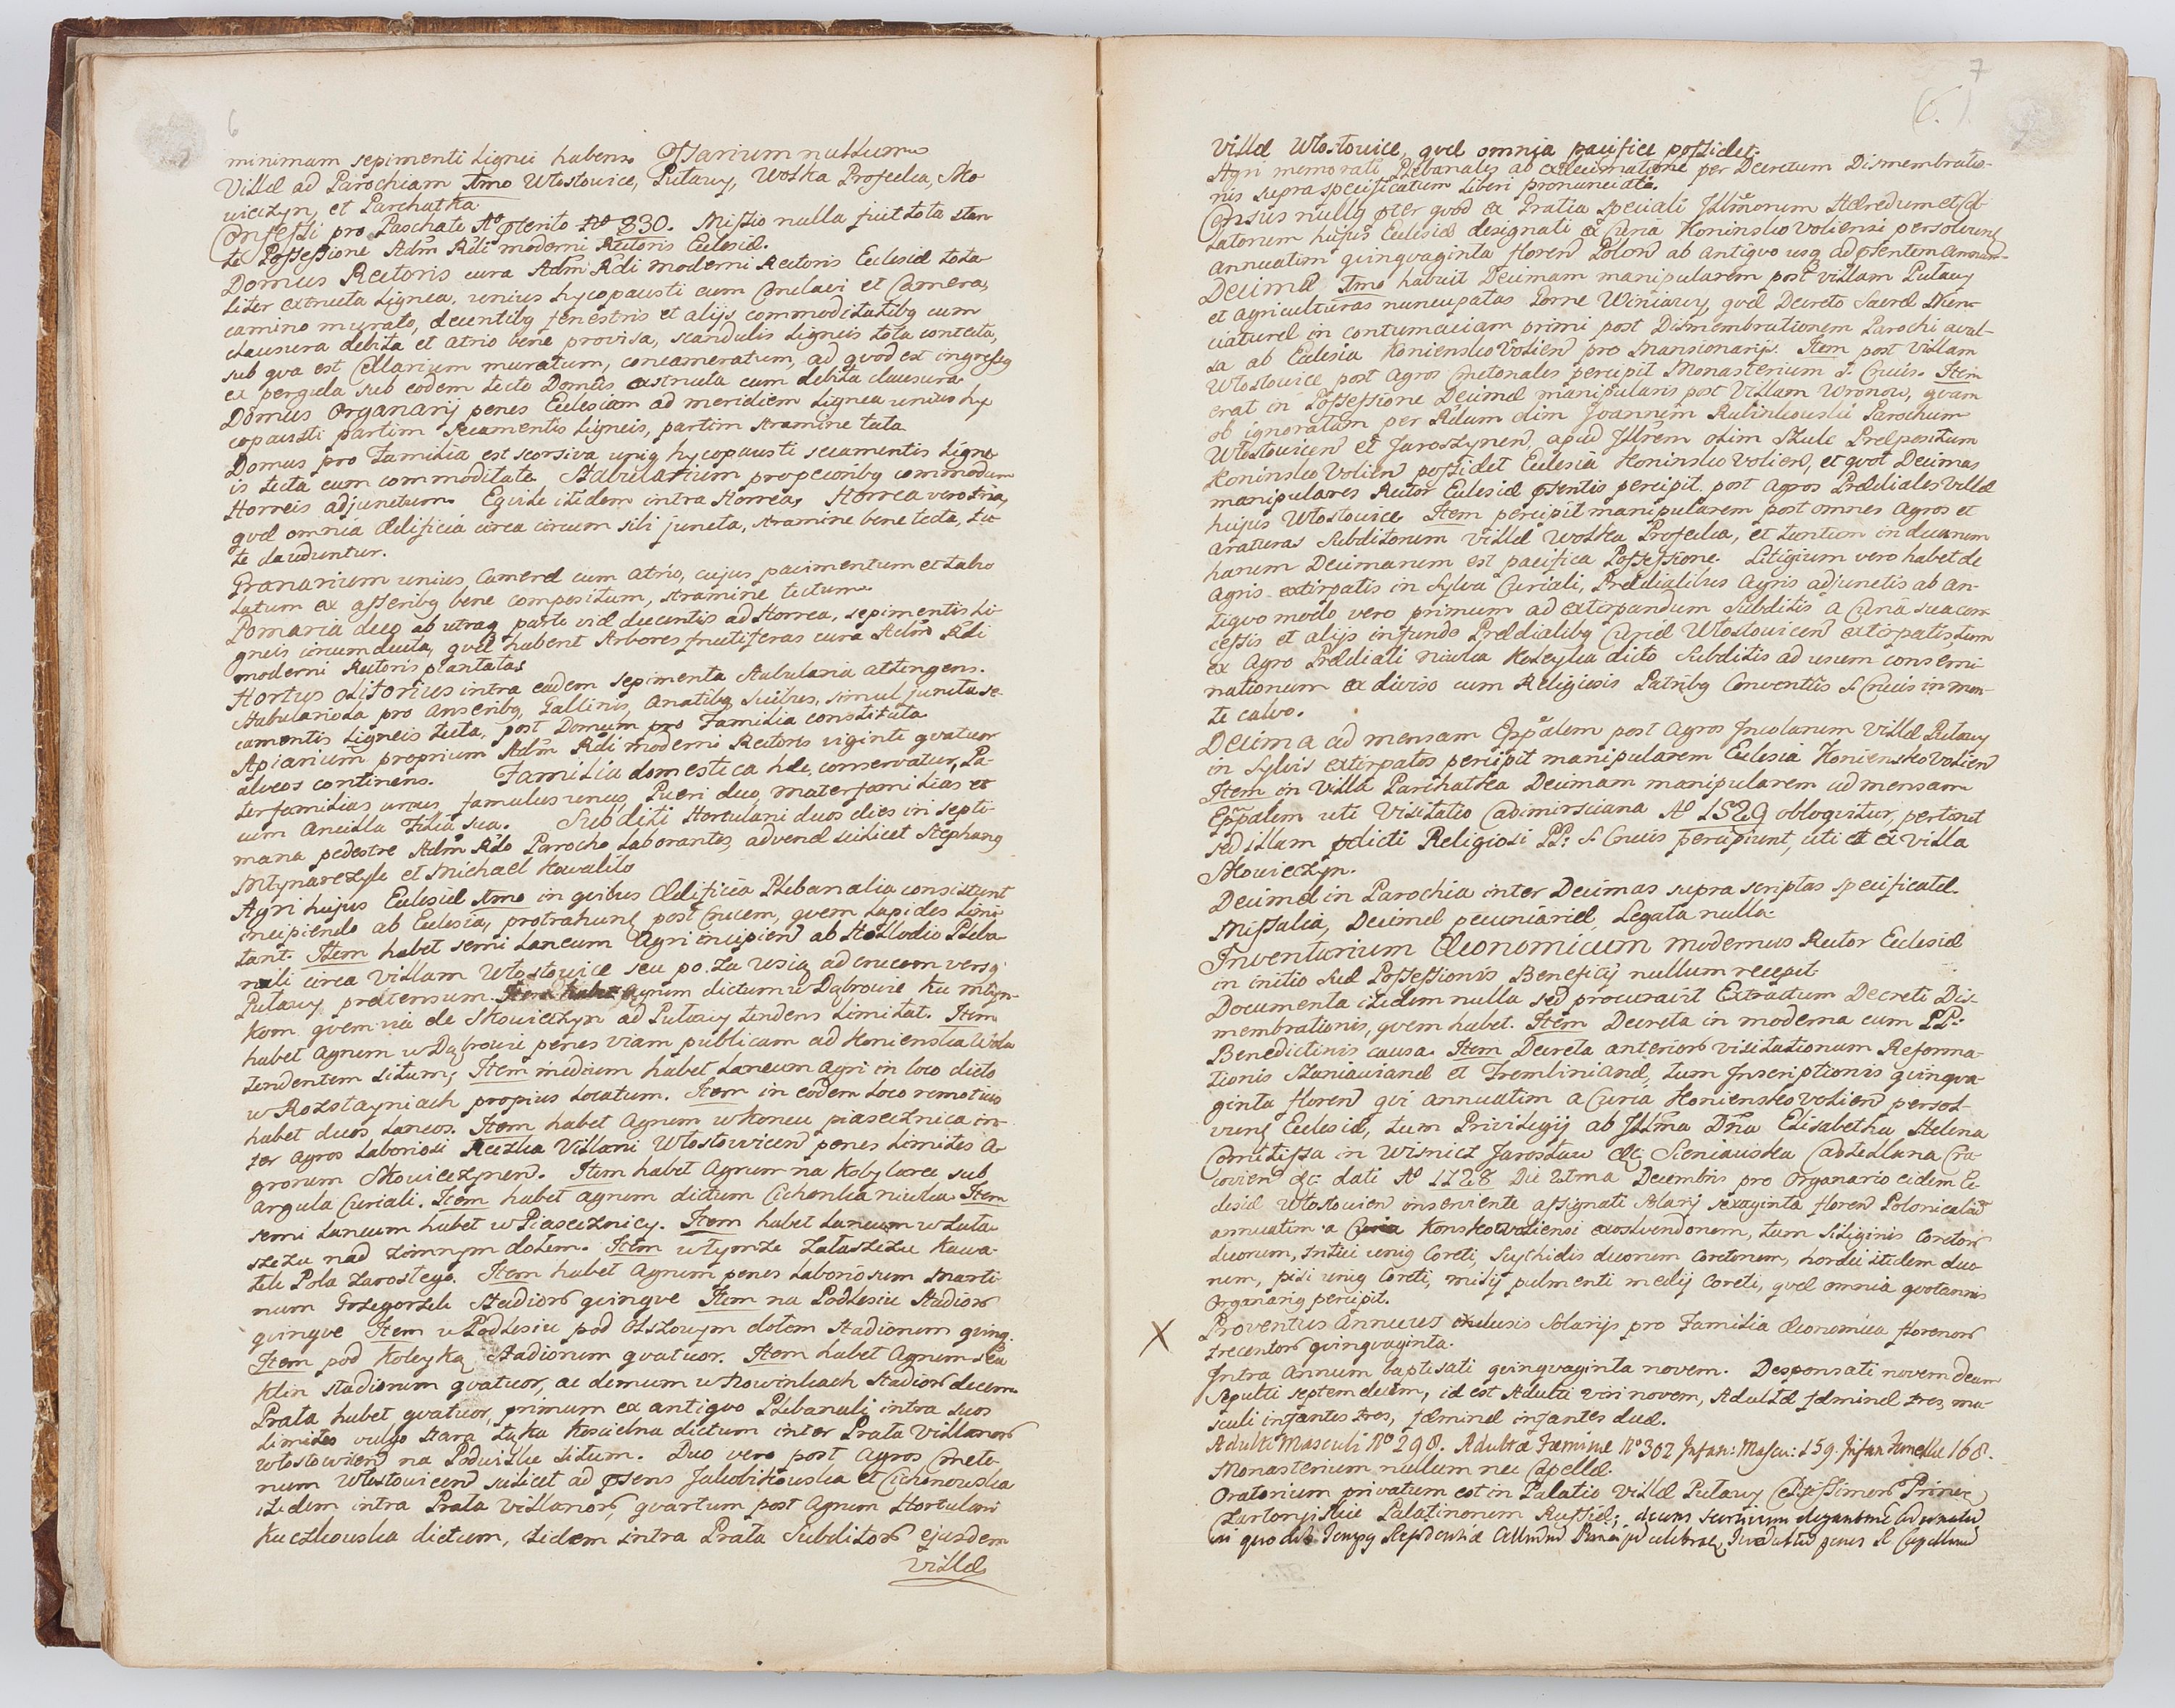 6
minimam sepimenti lignei habens Ossarium nullum
Villæ ad Parochiam Imo Włostowice, Puławy, Wolka Profecka, Sko
wieczyn, et Parchatka
Confessi pro Paschate Aº pterito Nº 830. Missio nulla fuit tota stan
te Possessione Adm Rdi moderni Rectoris Ecclesiæ.
Domus Rectoris cura Adm Rdi moderni Rectoris Ecclesiæ tota
liter extructa lignea, unius hypocausti cum Conclavi et Camera,
camino murato, decentibq fenestris et alijs commoditatibq cum
clausura debita et atrio bene provisa, scandulis ligneis tota contecta,
sub qua est Cellarium muratum, concameratum, ad quod est ingressq
ex pergula sub eodem tecto Domûs extructa cum debita clausura
Domus Organarij penes Ecclesiam ad meridiem lignea unius hy
copausti partim secamentis ligneis, partim stramine tecta
Domus pro Familia est seorsiva uniq hycopausti secamentis ligne
is tecta cum commoditate Stabularium pro pecoribq commodum
Horreis adjunctum. Equile itidem intra Horrea, Horrea vero tria,
quæ omnia Ædificia circa circum sibi juncta, stramine bene tecta, tu
te clauduntur.
Granarium unius Cameræ cum atrio, cujus pavimentum et tabu
latum ex asseribq bene compositum, stramine tectum
Pomaria duo ab utraq parte viæ ducentis ad Horrea, sepimentis li
gneis circumducta, quæ habent Arbores fructiferas cura Adm Rdi
moderni Rectoris plantatas
Hortus olitorius intra eadem sepimenta stabularia attingens.
Stabulariola pro Anseribq, Gallinis, Anatibq, Suibus, simul juncta se
camentis ligneis tecta, post Domum pro Familia constituta
Apiarium proprium Adm Rdi moderni Rectoris viginti quatuor
alveos continens. Familia domestica hæc conservatur, Pa-
terfamilias unus, famulus unus, Pueri duo, materfamilias et
cum Ancilla Filia sua. Subditi Hortulani duos dies in septi-
mana pedestre Adm Rdo Parocho laborantes, advenæ scilicet Stephanq
Młynarczyk et Michael Kowalik
Agri hujus Ecclesiæ Imo in quibus Ædificia Plebanalia consistunt
incipiendo ab Ecclesia, protrahunt post Crucem, quem lapides limi
tant. Item habet semi laneum Agri incipien ab Hallodio Pleba
nali circa Villam Włostowice seu po za wsią ad crucem versq
Puławy pretensum. Item habet Agrum dictum w Dąbrowie ku młyn-
kom quem via de Skowieczyn ad Puławy tendens limitat. Item
habet Agrum w Dąbrowie penes viam publicam ad Konienska Wola
tendentem situm; Item medium habet laneum agri in loco dicto
w Rozstayniach propius locatum. Item in eodem loco remotius
habet duos laneos. Item habet Agrum w koncu piasecznica in-
ter Agros laboriosi Reczka Villani Włostowicen penes limites A-
grorum Skowieczynen. Item habet Agrum na Kobylarce sub
argula Curiali. Item habet agrum dictum Cichonka niwka Item
semi laneum habet w Piasecznicy. Item habet laneum w Zata
szczu nad zimnym dołem. Item w tymze Zataszczu kawa-
łek Pola zarosłego. Item habet Agrum penes laboriosum Marti
num Grzegorzek Stadior quinque Item na Podlesiu Stadior
quinque Item w Podlesiu pod Olszowym dołem Stadiorum quinq.
Item pod Koleyką Stadiorum quatuor. Item habet Agrum
klin stadiorum quatuor, ac demum w Nowinkach Stadior decem
Prata habet quatuor, primum ex antiquo Plebanali intra suos
limites vulgo Stara Łąka Koscielna dictum inter Prata Villanor
Włostowicen na Podwislu situm. Duo vero post Agros Cmeto-
num Włostowicen scilicet ad psens Jakobikowska et Cichonowska
itidem intra Prata Villanor, quartum post Agrum Hortulani
Kuczkowska dictum, itidem intra Prata Subditor ejusdem
Villæ
7
(6.)
Villæ Włostowice, quæ omnia pacifice possidet.
Agri memorati Plebanales ab exdecimatione per Decretum Dismembratio-
nis supra specificatum liberi pronunciati.
Census nullq pter quod ex Gratia speciali Illmorum Hæredum et Col
latorum hujus Ecclesiæ designati a Curia Koninsko Voliensi persolvunt
annuatim quinquaginta floren Polon ab antiquo usq ad psentem Annum
Decimæ Imo habuit Decimam manipularem post villam Puławy
et agriculturas nuncupatas Gorne Winiawy, quæ Decreto Sacræ Nun-
ciaturæ in contumaciam primi post Dismembrationem Parochi avul-
sa ab Ecclesia Koniensko Volien pro Mansionarijs. Item post Villam
Włostowice post Agros Cmetonales percipit Monasterium S. Crucis. Item
erat in Possessione Decimæ manipularis post Villam Wronow, quam
ob ignoratam per Rdum olim Joannem Rubinkowski Parochum
Włostowicen et Jaroszynen, apud Illrem olim Szulc Præpositum
Koninsko Volien possidet Ecclesia Koninsko Volien, et quot Decimas
manipulares Rector Ecclesiæ psentis percipit post Agros Prædiales Villæ
hujus Włostowice Item percipit manipularem post omnes Agros et
araturas Subditorum Villæ Wolka Profecka, et tantum in duarum
harum Decimarum est pacifica Possessione. Litigium vero habet de
Agris extirpatis in Sylva Curiali, Prædialibus Agris adjunctis ab an-
tiquo modo vero primum ad extirpandum Subditis a Curia sua con-
cessis et alijs in fundo Prædialibq Curiæ Włostowicen extirpatis, tum
ex Agro Prædiali niwka Koleyka dicto Subditis ad usum consemi-
nationum ex diviso cum Religiosis Patribq Conventûs S. Crucis in mon-
te calvo.
Decima ad mensam Eppalem post Agros Incolarum Villæ Puławy
in Sylvis extirpatos percipit manipularem Ecclesia Koniensko Volien
Item in Villa Parchatka Decimam manipularem ad mensam
Eppalem uti Visitatio Casimirsciana Aº 1529 obloquitur, pertinet
sed illam pdicti Religiosi PP: S. Crucis percipiunt, uti et ex villa
Skowieczyn.
Decimæ in Parochia inter Decimas supra scriptas specificatæ.
Missalia, Decimæ pecuniariæ, Legata nulla.
Inventarium Œconomicum modernus Rector Ecclesiæ
in initio suæ Possessionis Beneficij nullum recepit.
Documenta itidem nulla sed procuravit Extractum Decreti Dis-
membrationis, quem habet. Item Decreta in moderna cum PP:
Benedictinis causa. Item Decreta anterior visitationum Reforma-
tionis Szaniavianæ et Trembinianæ, tum Inscriptionis quinqua-
ginta floren qui annuatim a Curia Koniensko Volien persol-
vunt Ecclesiæ, tum Privilegij ab Illma Dna Elisabetha Helena
Comitissa in Wisnicz Jarosław &c. Sieniawska Castellana Cra-
covien &c. dati Aº 1728 Die 2tma Decembris pro Organario eidem Ec
clesiæ Włostowien inserviente assignati Solarij sexaginta floren Polonicaliu
annuatim a Curia Konskowoliensi exolvendorum, tum Siliginis Coretor
duorum, tritici uniq Coreti, Scythidis duorum Coretorum, hordei itidem duo
rum, pisi uniq Coreti, milij pulmenti medij Coreti, quæ omnia quotannis
Organariq percipit.
X Proventus Annuus exclusis Solarijs pro Familia Œconomica florenor
trecentor quinquaginta.
Intra Annum baptisati quinquaginta novem. Desponsati novemdecim
Sepulti septemdecim, id est Adulti viri novem, Adultæ fæminæ tres, ma-
sculi infantes tres, fæminæ infantes duæ.
Adulti Masculi Nº 298. Adultæ Fæminæ Nº 302 Infan: Mascu: 159. Infan Fæmellæ 168.
Monasterium nullum nec Capellæ.
Oratorium privatum est in Palatio Villæ Puławy Celsissimor Princ
Czartoryskie Palatinorum Russiæ;